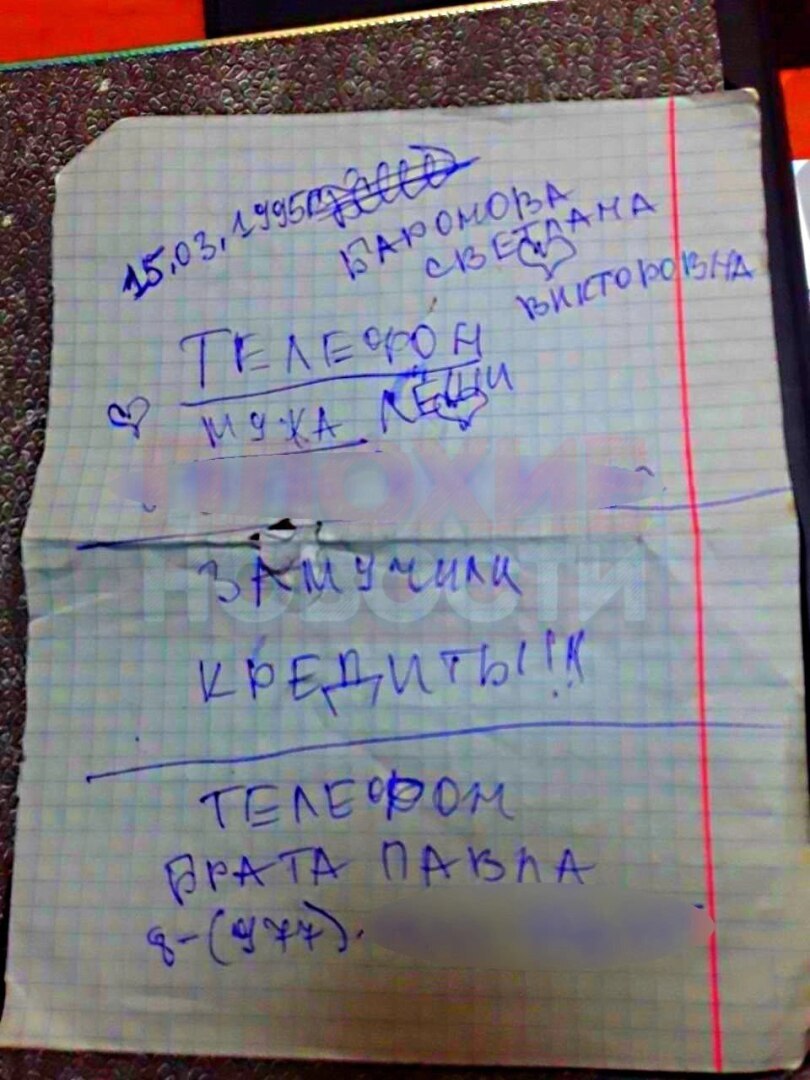 15.03.1995
БАРОНОВА
СВЕТЛАНА
ВИКТОРОВНА
ТЕЛЕФОН
МУЖА ЛЁШИ
ПЛОХИЕ
НОВОСТИ
ЗАМУЧИЛИ
КРЕДИТЫ!!!
ТЕЛЕФОН
БРАТА ПАВЛА
8-(977).